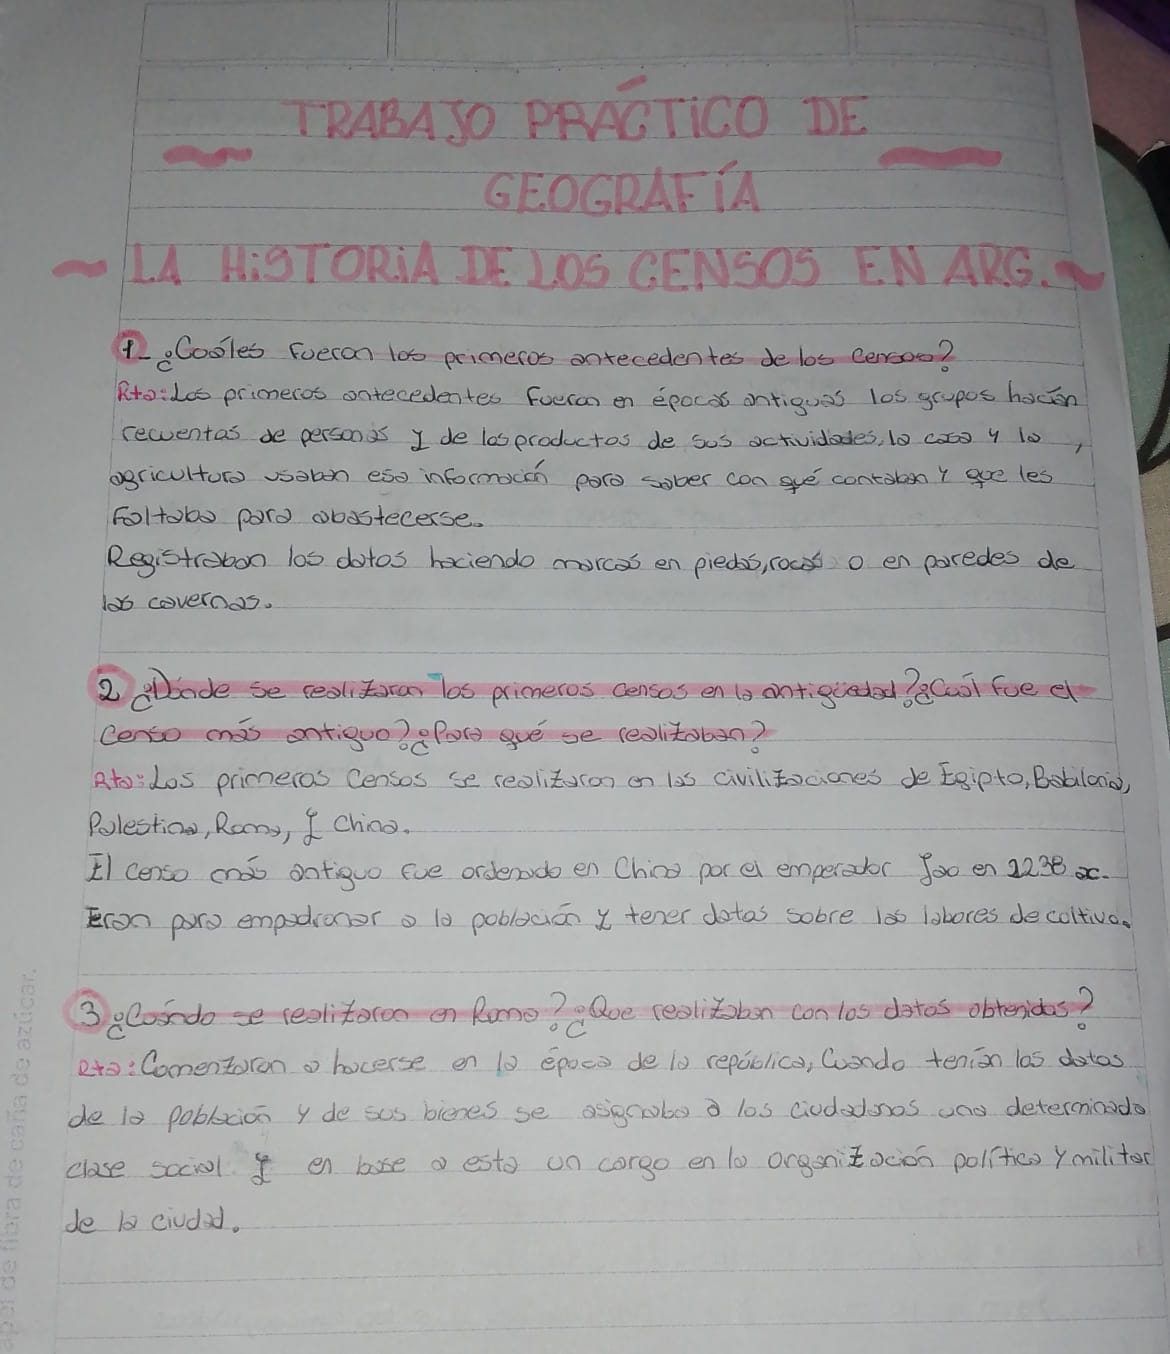 TRABAJO PRÁCTICO DE
GEOGRAFÍA
~ LA HISTORIA DE LOS CENSOS EN ARG. ~
1_ ¿Cuáles fueron los primeros antecedentes de los censos?
Rta: Los primeros antecedentes fueron en épocas antiguas los grupos hacían
recuentas de personas y de los productos de sus actividades, la caza y la ,
agricultura usaban esa información para saber con qué contaban y que les
faltaba para abastecerse.
Registraban los datos haciendo marcas en piedas, rocas o en paredes de
las cavernas.
2 ¿Dónde se realizaron los primeros censos en la antigüedad? ¿Cuál fue el
Censo más antiguo? ¿Para qué se realizaban?
Rta: Los primeros Censos se realizaron en las civilizaciones de Egipto, Babilonia,
Palestina, Roma, y China.
El censo más antiguo fue ordenado en China por el emperador Yao en 2238 ac.
Eran para empadronar a la población y tener datos sobre las labores de cultivo.
3 ¿Cuándo se realizaron en Roma? ¿Que realizaban con los datos obtenidos?
Rta: Comenzaron a hacerse en la época de la república, Cuando tenían los datos
de la Población y de sus bienes se asignaba a los ciudadanos una determinada
clase social. y en base a esta un cargo en la organización política y militar
de la ciudad.
apel de fibra de caña de azúcar.